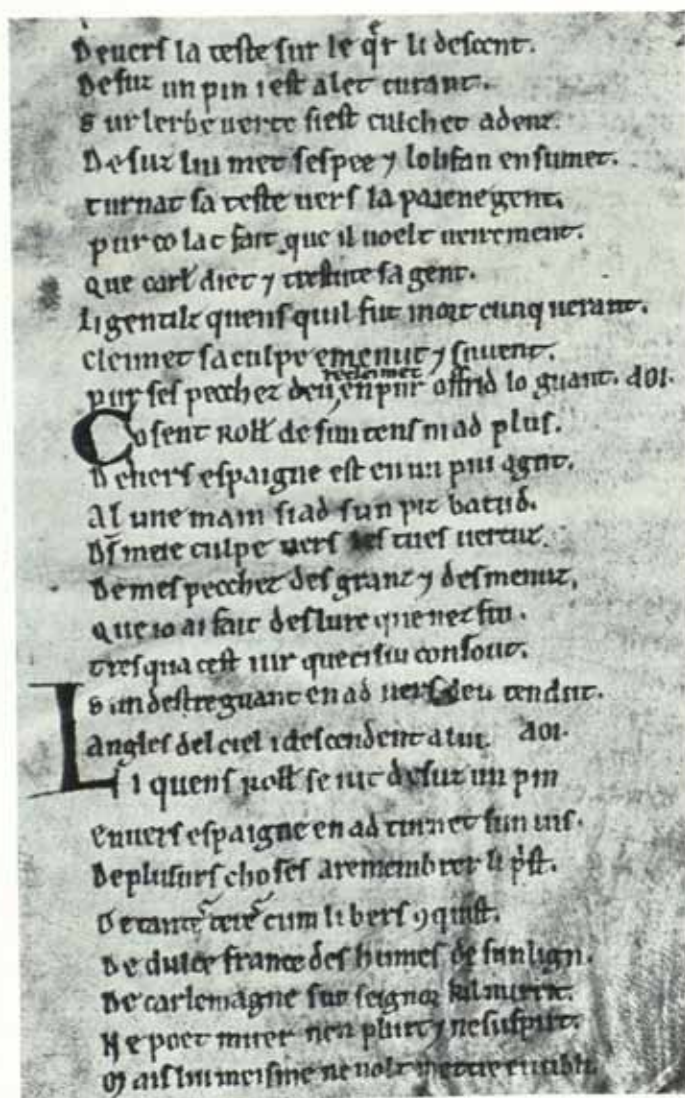 Deuers la teste sur le q̄r li descent.
Desuz un pin i est alet curant.
Sur lerbe uerte siest culchet adenz.
Desuz lui met sespee ⁊ lolifan ensumet.
turnat sa teste uers la paienegent.
pur co lat fait que il uoelt ueirement.
que carł diet ⁊ trestute sagent.
Li gentilz quens quil fut mort cunquerant.
Cleimet saculpe emenut ⁊ suuent.
recleimet
pur ses pecchez deu enpur offrid lo guant. AOI.
Co sent Rolł de sun tens niad plus.
Deuers espaigne est en un pui agut.
Al une main siad sun piz batud.
Ds̄ meie culpe uers les tues uertuz
De mes pecchez des granz ⁊ des menuz,
que io ai fait des lure que nez fui.
tresqua cest iur que ci sui consout.
Sun destre guant en ad uers deu tendut.
Angles del ciel i descendent alui. AOI.
Li quens Rolł se iut desuz un pin
Enuers espaigne en ad turnet sun uis.
De plusurs choses aremembrer li p̄st.
De tantes teres cum li bers ꝯquist.
De dulce france des humes de sun lign.
De carlemagne sun seignor kil nurrit.
Ne poet muer nen plurt ⁊ ne suspirt.
Mais lui meisme ne uolt mettre en ubli.